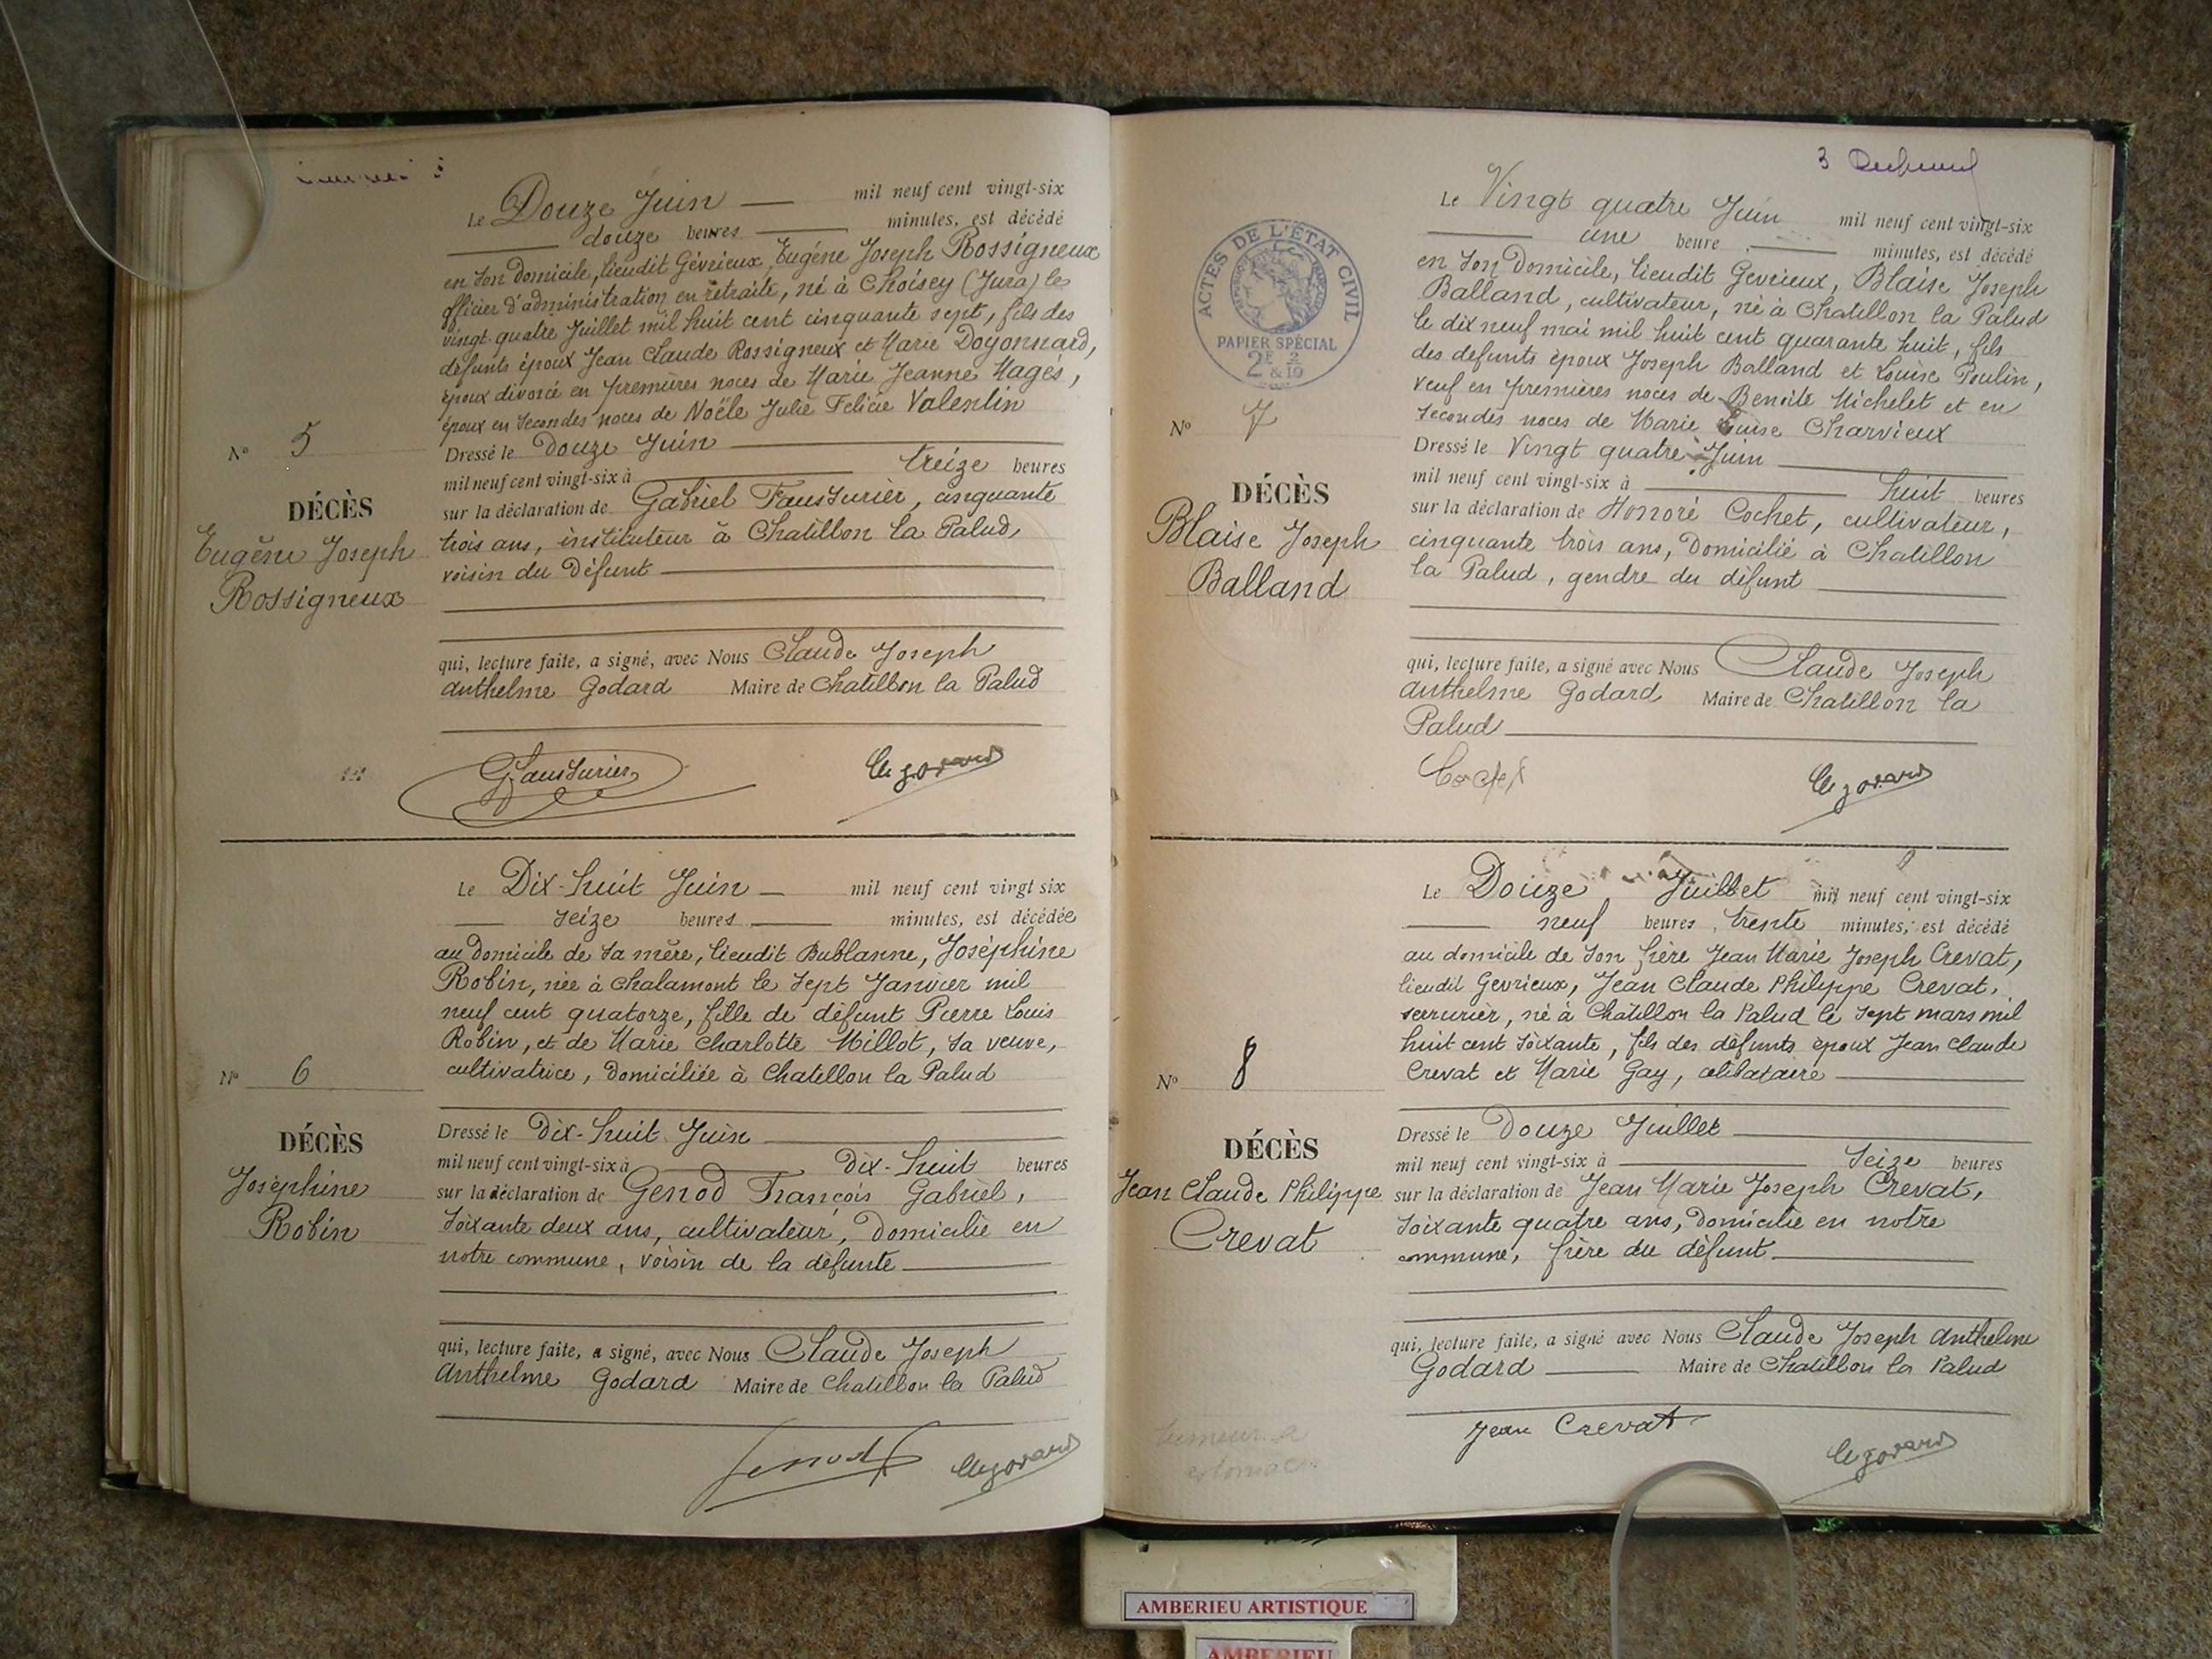 Le Douze Juin mil neuf cent vingt-six
douze heures minutes, est décédé
en son domicile, lieudit Gévrieux, Eugéne Joseph Rossigneux
officier d'administration en retraite, né à Choisey (Jura) le
vingt quatre Juillet mil huit cent cinquante sept, fils des
défunts époux Jean Claude Rossigneux et Marie Doyonnard,
époux divorcé en premières noces de Marie Jeanne Magés,
époux en secondes noces de Noële Julie Felicie Valentin
N° 5
Dressé le Douze Juin
mil neuf cent vingt-six à treize heures
DÉCÈS
Eugène Joseph
Rossigneux
sur la déclaration de Gabriel Fausturier, cinquante
trois ans, instituteur à Chatillon la Palud,
voisin du défunt
qui, lecture faite, a signé, avec Nous Claude Joseph
Anthelme Godard Maire de Chatillon la Palud
G. Fausturier
Le Dix-huit Juin mil neuf cent vingt six
seize heures minutes, est décédée
au domicile de sa mère, lieudit Bublanne, Joséphine
Robin, née à Chalamont le sept Janvier mil
neuf cent quatorze, fille de défunt Pierre Louis
Robin, et de Marie Charlotte Millot, sa veuve,
cultivatrice, domiciliée à Chatillon la Palud
N° 6
DÉCÈS
Joséphine
Robin
Dressé le Dix-huit Juin
mil neuf cent vingt-six à Dix-huit heures
sur la déclaration de Genod François Gabriel,
soixante deux ans, cultivateur, domicilié en
notre commune, voisin de la défunte
qui, lecture faite, a signé, avec Nous Claude Joseph
Anthelme Godard Maire de Chatillon la Palud
Genod
3
ACTES DE L'ÉTAT CIVIL
PAPIER SPÉCIAL
2F & 2/10
Le Vingt quatre Juin mil neuf cent vingt-six
une heure minutes, est décédé
en son domicile, lieudit Gevrieux, Blaise Joseph
Balland, cultivateur, né à Chatillon la Palud
le dix neuf mai mil huit cent quarante huit, fils
des defunts époux Joseph Balland et Louise Poulin,
veuf en premières noces de Benoite Michelet et en
secondes noces de Marie Louise Charvieux
N° 7
Dressé le Vingt quatre Juin
mil neuf cent vingt-six à huit heures
DÉCÈS
Blaise Joseph
Balland
sur la déclaration de Honoré Cochet, cultivateur,
cinquante trois ans, domicilié à Chatillon
la Palud, gendre du défunt
qui, lecture faite, a signé avec Nous Claude Joseph
Anthelme Godard Maire de Chatillon la
Palud
Cochet
Le Douze Juillet mil neuf cent vingt-six
neuf heures trente minutes, est décédé
au domicile de son frère Jean Marie Joseph Crevat,
lieudit Gevrieux, Jean Claude Philippe Crevat,
serrurier, né à Chatillon la Palud le sept mars mil
huit cent soixante, fils des défunts époux Jean Claude
Crevat et Marie Gay, célibataire
N° 8
DÉCÈS
Jean Claude Philippe
Crevat
Dressé le Douze Juillet
mil neuf cent vingt-six à Seize heures
sur la déclaration de Jean Marie Joseph Crevat,
soixante quatre ans, domicilié en notre
commune, frère du défunt
qui, lecture faite, a signé avec Nous Claude Joseph Anthelme
Godard Maire de Chatillon la Palud
Jean Crevat
AMBERIEU ARTISTIQUE
AMBERIEU